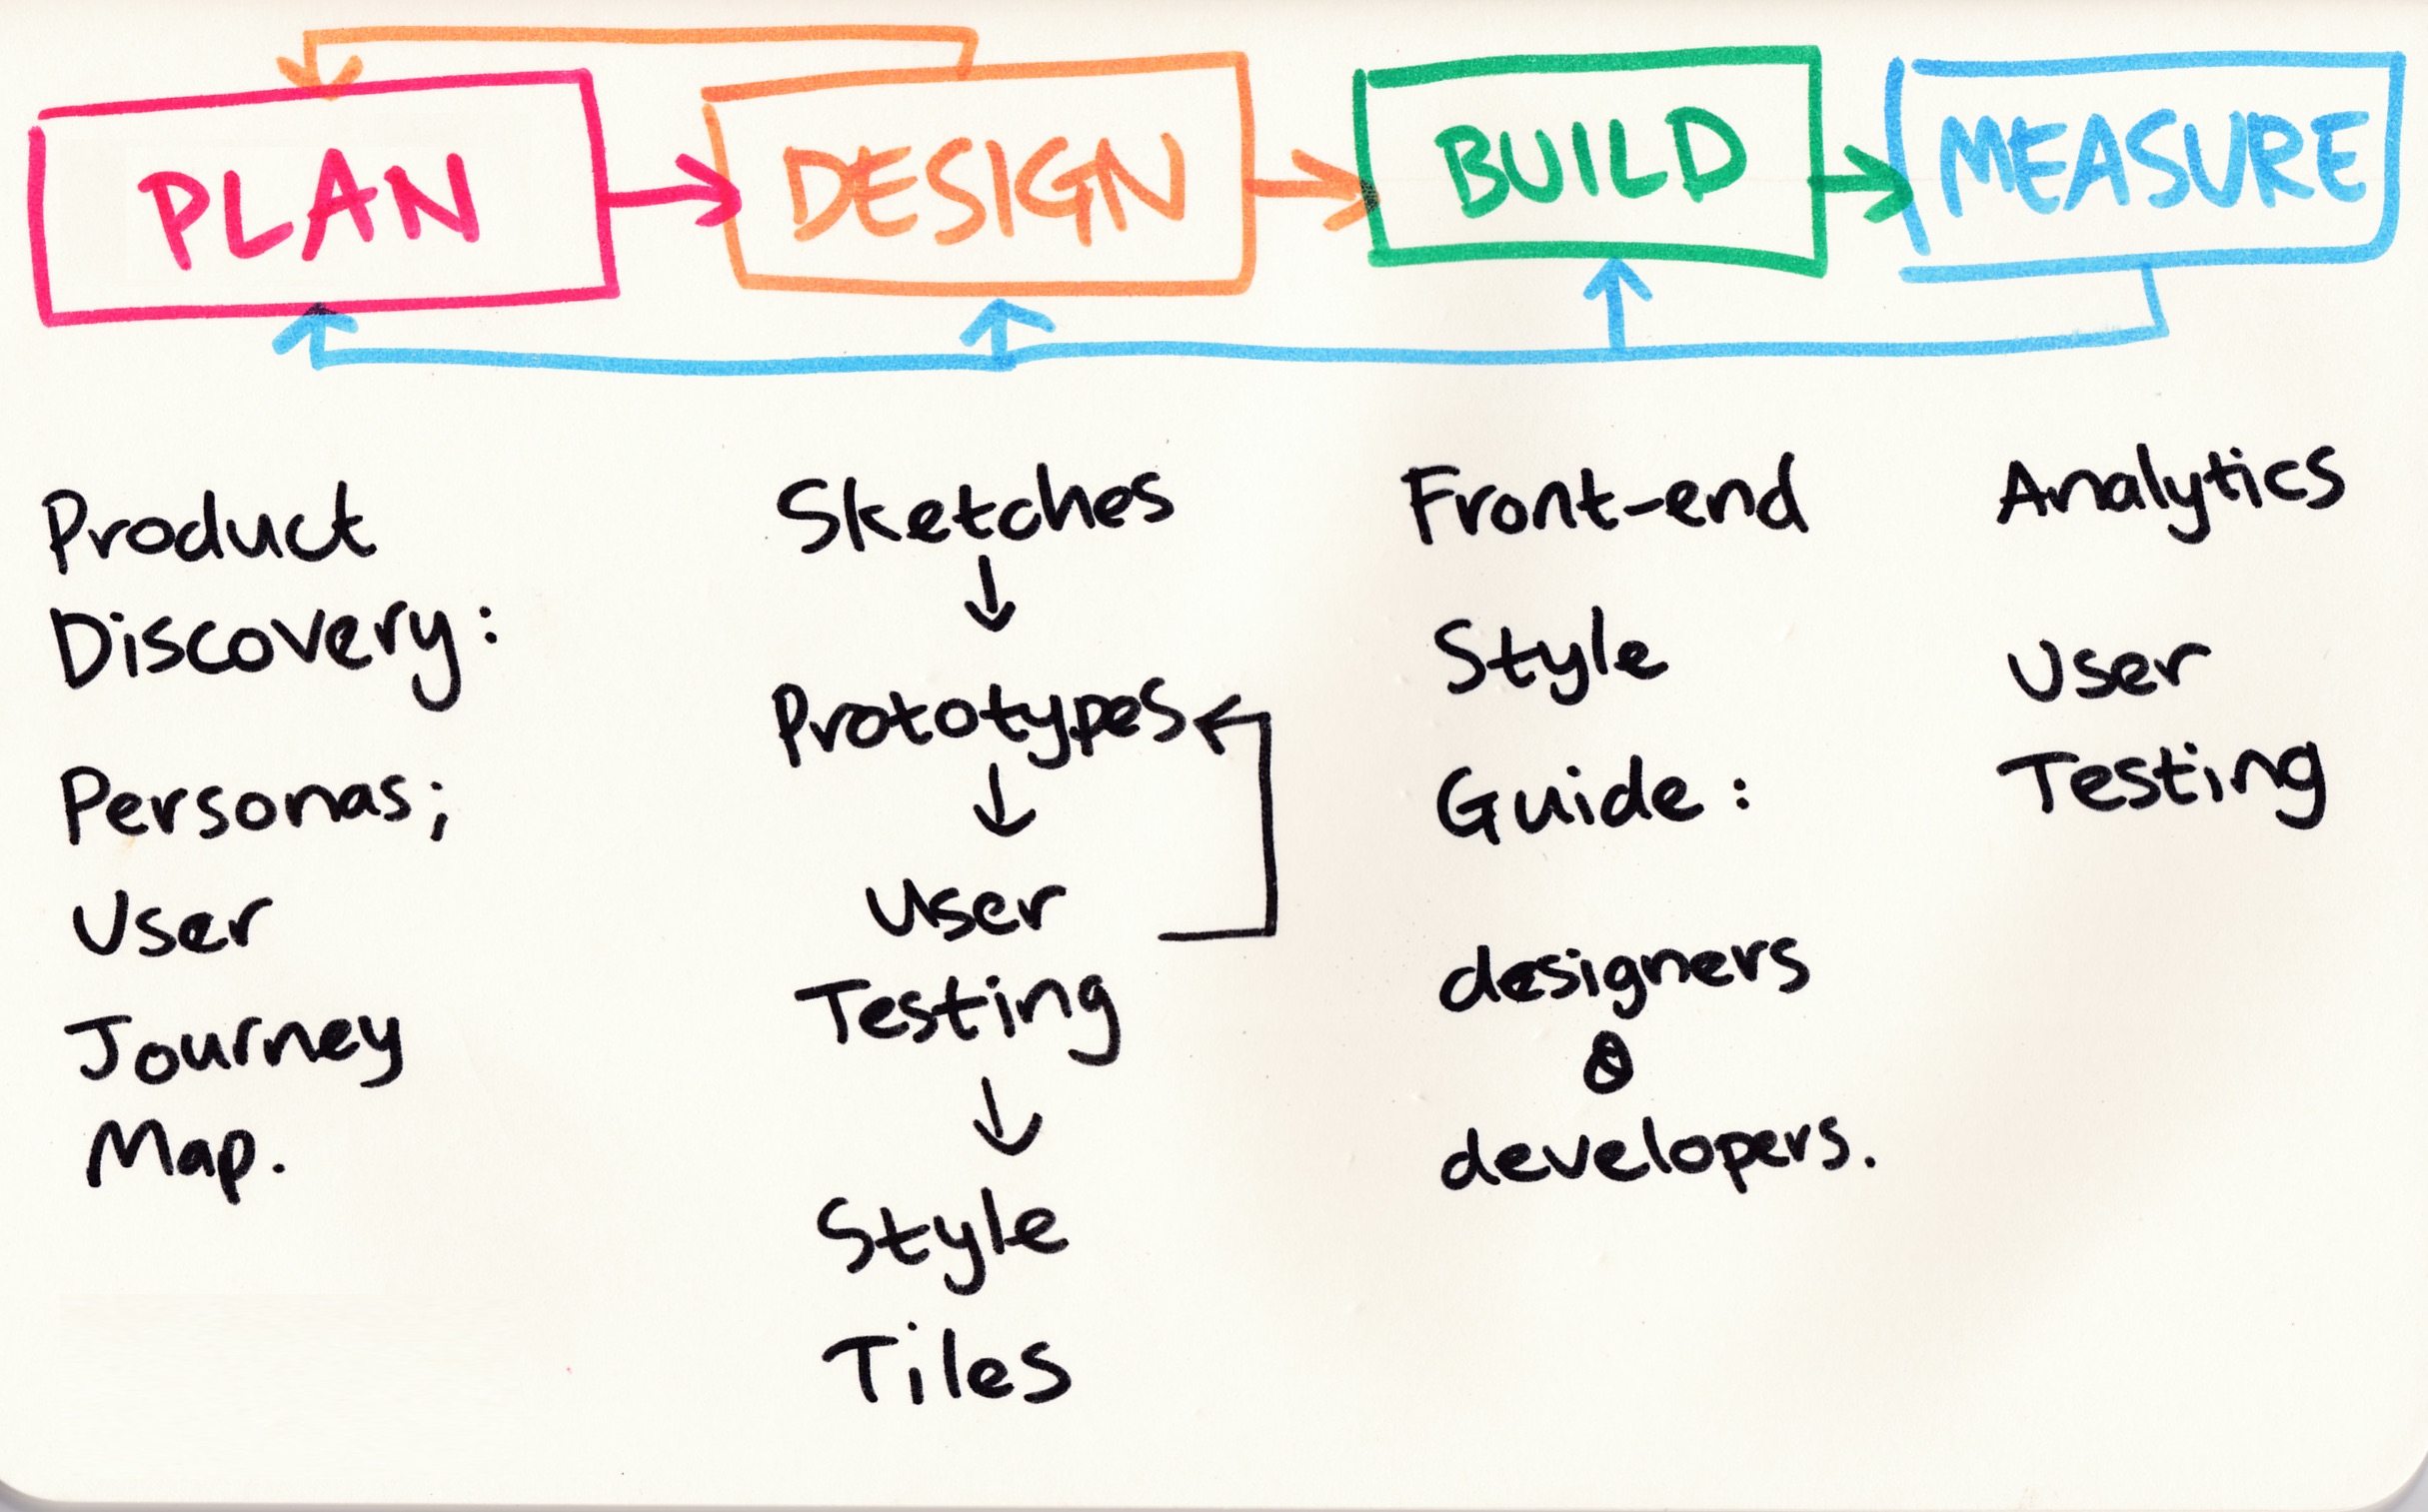 PLAN
DESIGN
BUILD
MEASURE
Product
Discovery:
Personas;
User
Journey
Map.
Sketches
Prototypes
User
Testing
Style
Tiles
Front-end
Style
Guide:
designers
&
developers.
Analytics
User
Testing